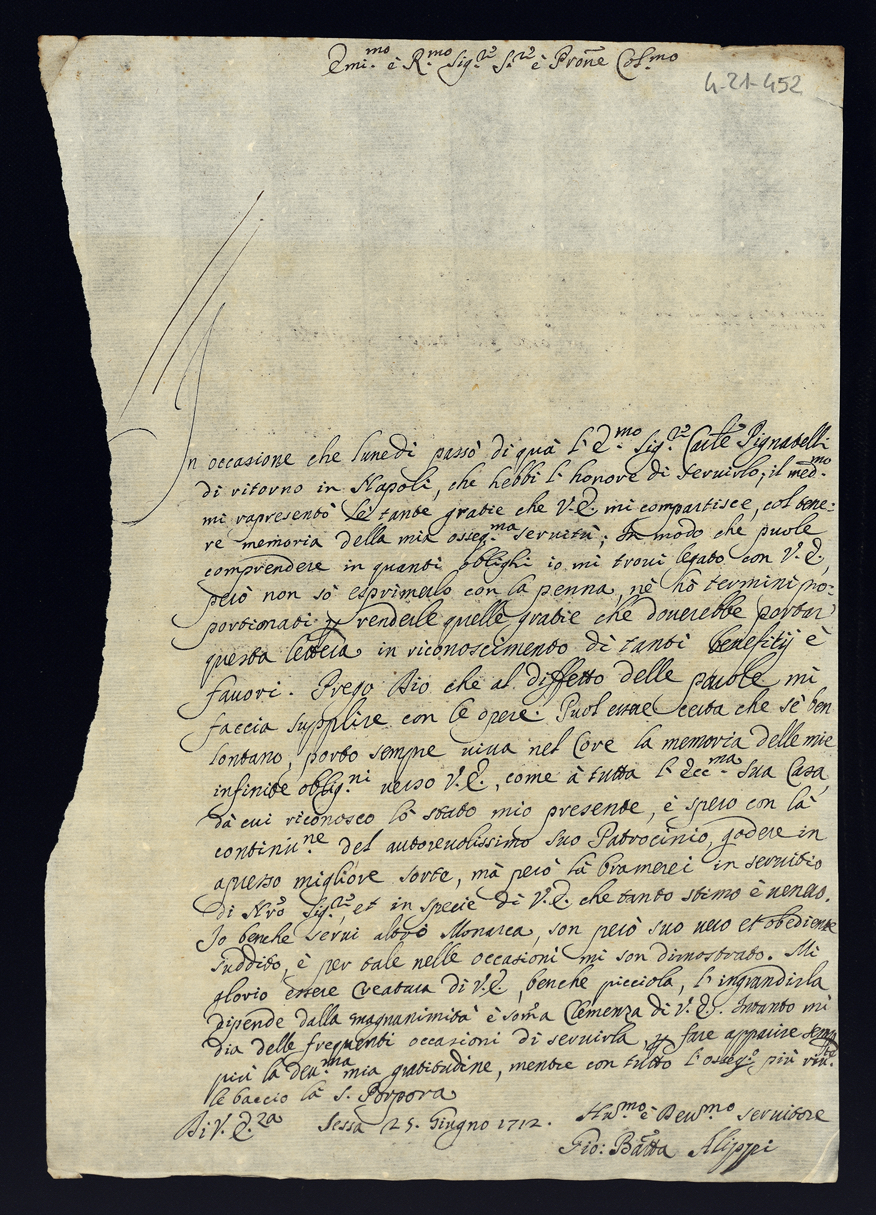 Emi.mo è R.mo Sig.re S.re è Prone Col.mo
4-21-452
In occasione che lunedi passò di quà l'E.mo Sig.re Car.le Pignatelli
di ritorno in Napoli, che hebbi l'honore di servirlo; il med.mo
mi rapresentò le tante gratie che V.E. mi compartisce, col tene:
re memoria della mia osseq.ma servitù; In modo che puole
comprendere in quanti oblighi io mi trovi legato con V.E,
però non sò esprimerlo con la penna, nè hò termini pro:
portionati p renderle quelle gratie che doverebbe portar
questa lettera in riconoscimento di tanti benefitij è
favori. Prego Dio che al diffetto delle parole mi
faccia supplire con le opere. Puol esserne certa che sè ben
lontano, porto sempre viva nel Core la memoria delle mie
infinite oblig.ni verso V.E., come à tutta l'Ecc.ma sua Casa,
dà cui riconosco lò stato mio presente, è spero con là
continu.ne del autorevolissimo suo Patrocinio, godere in
apresso migliore sorte, mà però là bramerei in servitio
di Nro Sig.re, et in specie di V.E. che tanto stimo è venero.
Io benche servi altro Monarca, son però suo vero et obediente
suddito, è per tale nelle occasioni mi son dimostrato. Mi
glorio essere Creatura di V.E, benche picciola, l'ingrandirla
dipende dalla magnanimità è som̃a Clemenza di V.E. Intanto mi
dia delle frequenti occasioni di servirla, p fare apparire sempre
più la dev.ma mia gratitudine, mentre con tutto l'osseq.o più
le baccio là S. Porpora
Di V. E.za Sessa 25. Giugno 1712. Hu.mo è Dev.mo servitore
Gio: Batta Alippi